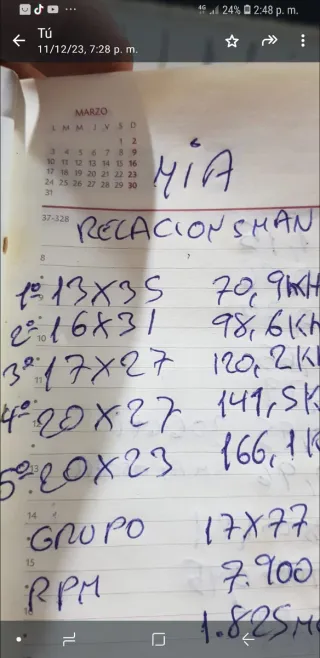 4G 24% 2:48 p. m.
Tú
11/12/23, 7:28 p. m.
MARZO
L M M J V S D
1 2
3 4 5 6 7 8 9
10 11 12 13 14 15 16
17 18 19 20 21 22 23
24 25 26 27 28 29 30
31
MIA
37-328
RELACION SMAN
8
1º 13X35 70,9KH
2º 16X31 98,6KH
10
3º 17X27 120,2K
11
4º 20X27 141,5K
5º 20X23 166,1K
13
14
GRUPO 17X77
15
RPM 7.900
16
1.825M